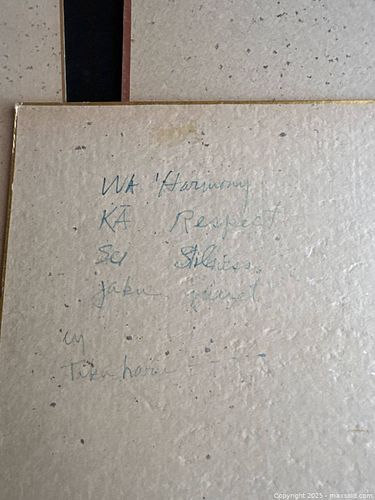 WA 'Harmony
KĀ Respect
Sei Stillness
jaku quiet
Copyright 2025 - maxsold.com